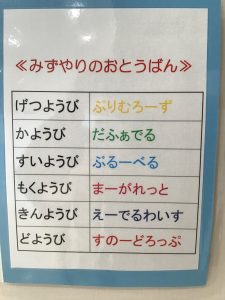 ≪みずやりのおとうばん≫
げつようび ぷりむろーず
かようび だふぁでる
すいようび ぶるーべる
もくようび まーがれっと
きんようび えーでるわいす
どようび すのーどろっぷ